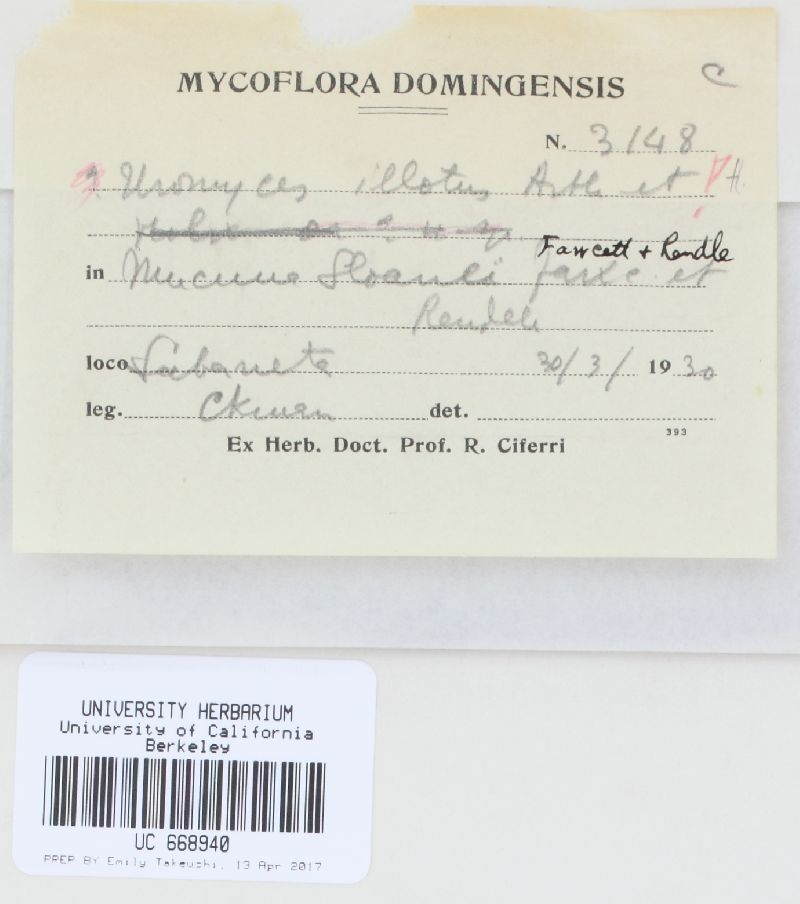 MYCOFLORA DOMINGENSIS
C
N. 3148
? Uromyces illotus Arth et H.
Fawcett + Rendle
in Mucuna Sloanei Fawc. et
Rendle
loco Sabaneta 30/3/ 1930
leg. Ekman det.
393
Ex Herb. Doct. Prof. R. Ciferri
UNIVERSITY HERBARIUM
University of California
Berkeley
UC 668940
PREP BY Emily Takeuchi, 13 Apr 2017